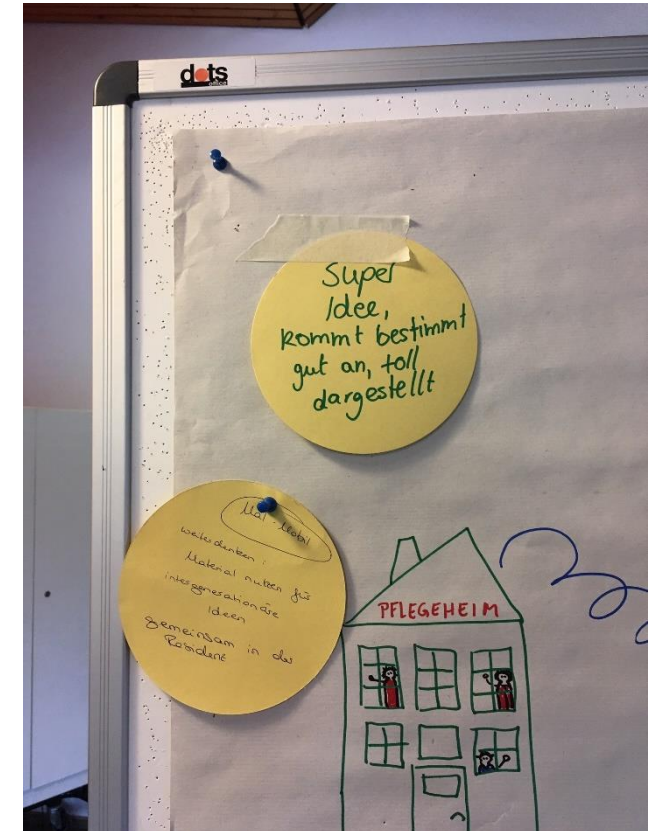 dots
Super
Idee,
kommt bestimmt
gut an, toll
dargestellt
Mal-Mobil
weiterdenken:
Material nutzen für
intergenerationäre
Ideen
gemeinsam in der
PFLEGEHEIM